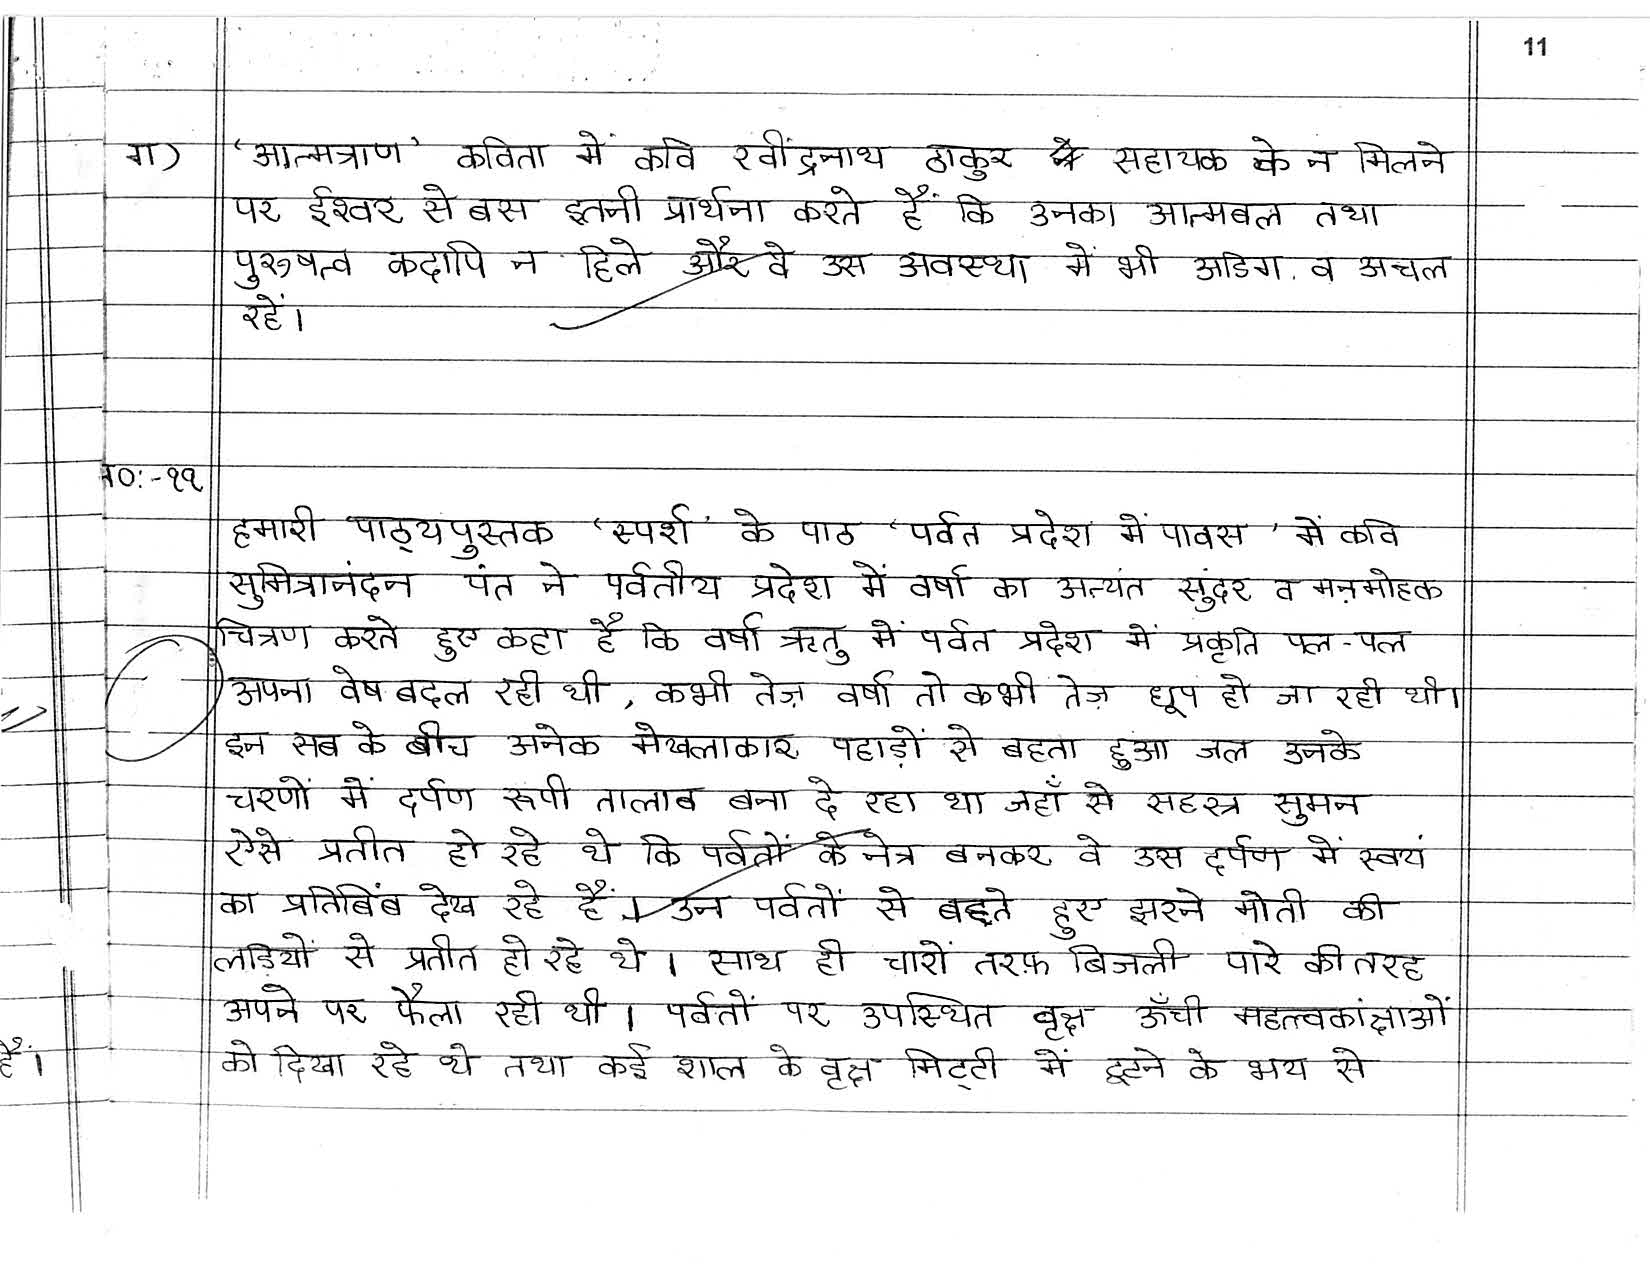 11
ग) 'आत्मत्राण' कविता में कवि रवींद्रनाथ ठाकुर सहायक के न मिलने
पर ईश्वर से बस इतनी प्रार्थना करते हैं कि उनका आत्मबल तथा
पुरुषत्व कदापि न हिले और वे उस अवस्था में भी अडिग व अचल
रहें।
NO:-११
हमारी पाठ्यपुस्तक 'स्पर्श' के पाठ 'पर्वत प्रदेश में पावस' में कवि
सुमित्रानंदन पंत ने पर्वतीय प्रदेश में वर्षा का अत्यंत सुंदर व मनमोहक
चित्रण करते हुए कहा है कि वर्षा ऋतु में पर्वत प्रदेश में प्रकृति पल-पल
अपना वेष बदल रही थी, कभी तेज़ वर्षा तो कभी तेज़ धूप हो जा रही थी।
इन सब के बीच अनेक मेखलाकार पहाड़ों से बहता हुआ जल उनके
चरणों में दर्पण रूपी तालाब बना दे रहा था जहाँ से सहस्त्र सुमन
ऐसे प्रतीत हो रहे थे कि पर्वतों के नेत्र बनकर वे उस दर्पण में स्वयं
का प्रतिबिंब देख रहे हैं। उन पर्वतों से बहते हुए झरने मोती की
लड़ियों से प्रतीत हो रहे थे। साथ ही चारों तरफ़ बिजली पारे की तरह
अपने पर फैला रही थी। पर्वतों पर उपस्थित वृक्ष ऊँची महत्त्वकांक्षाओं
को दिखा रहे थे तथा कई शाल के वृक्ष मिट्टी में टूटने के भय से
हैं।